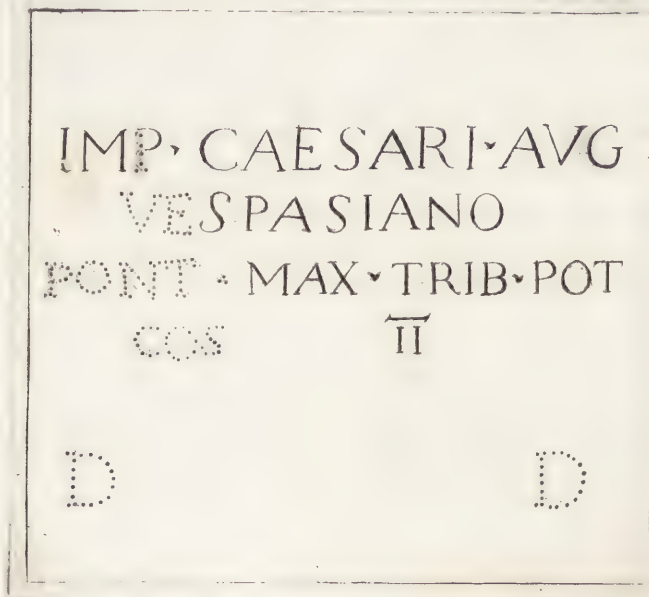 IMP · CAESARI · AVG
VESPASIANO
PONT · MAX · TRIB · POT
COS II
D D